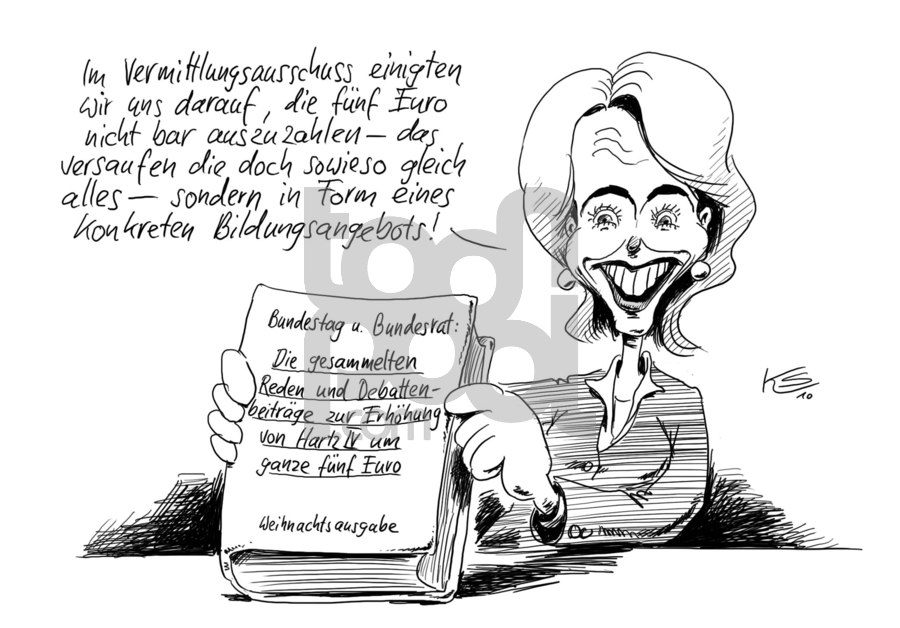 Im Vermittlungsausschuss einigten
wir uns darauf, die fünf Euro
nicht bar auszuzahlen – das
versaufen die doch sowieso gleich
alles – sondern in Form eines
konkreten Bildungsangebots!
Bundestag u. Bundesrat:
Die gesammelten
Reden und Debatten-
beiträge zur Erhöhung
von Hartz IV um
ganze fünf Euro
Weihnachtsausgabe
KS
10
toonpool
.com